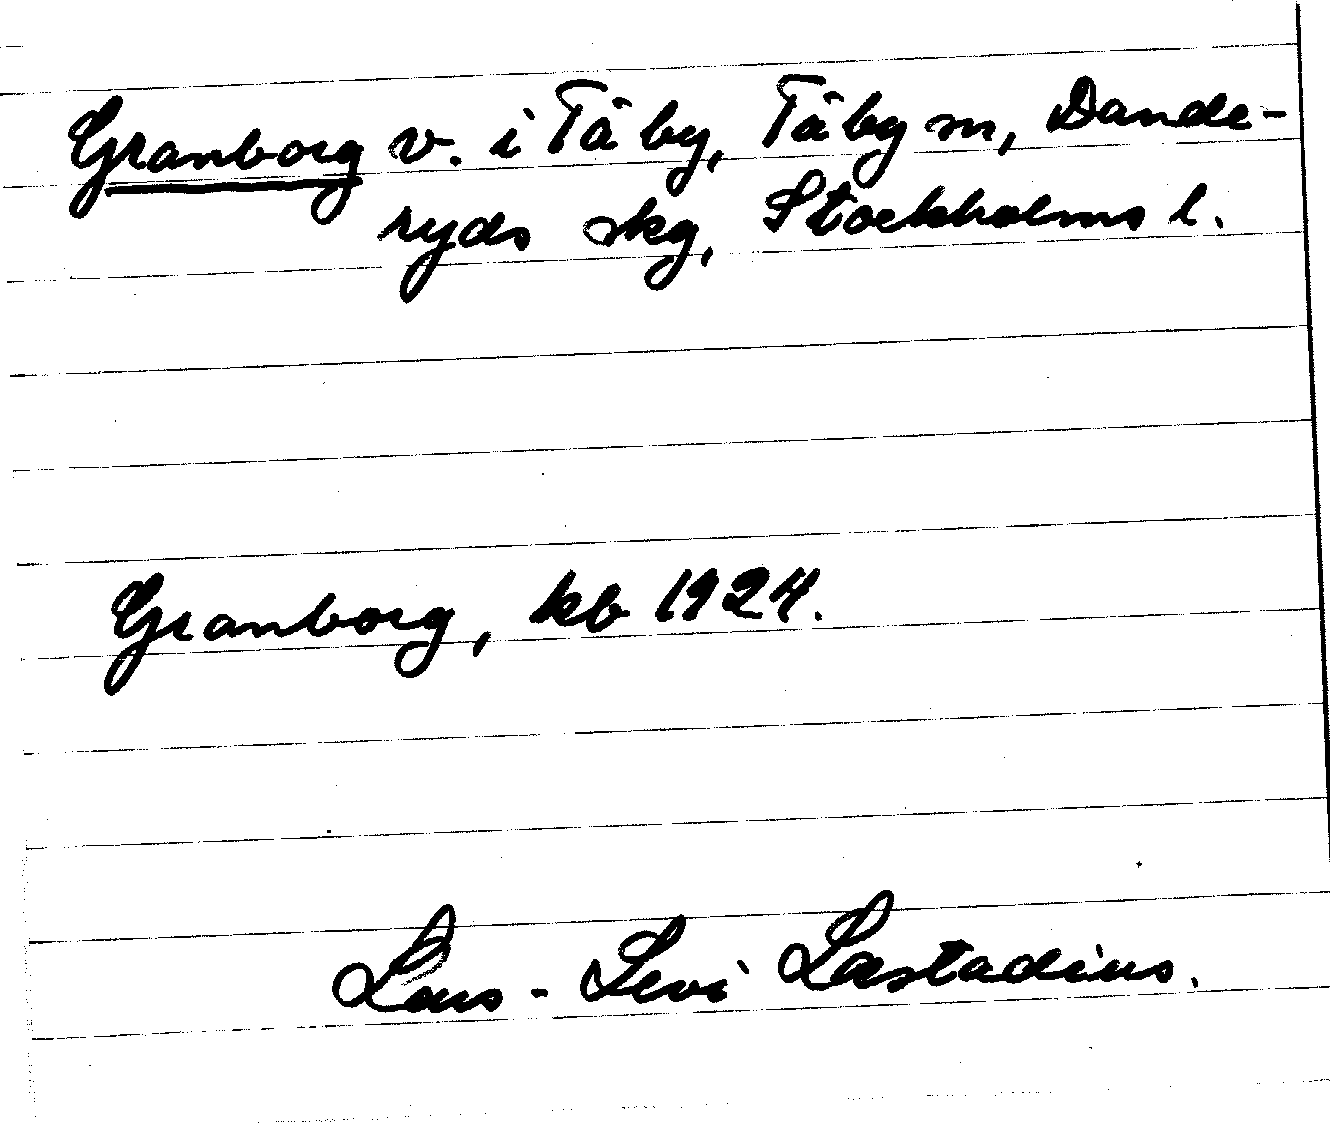 Granborg v. i Täby, Täby sn, Dande-
ryds skg, Stockholms l.
Granborg, kb 1924.
Lars-Levi Læstadius.